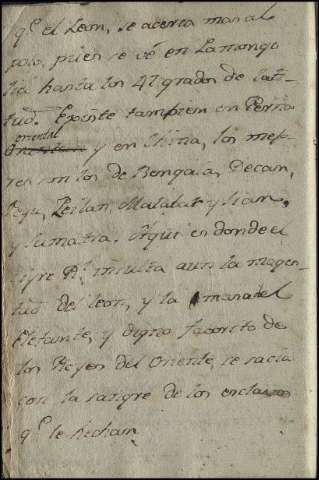 qe. el Leon, se acerca mas al
polo, pues se vé en la Mongo
lia hasta los 47 grados de lati-
tud. Existe tampien en Persia
oriental y en China, los mejo-
res son los de Bengala, Decan,
Pegu, Zeilan, Malabar y Sian,
y Sumatra. Aqui es donde el
tigre Rl. insulta aun la mages-
tud del leon, y la mana del
Elefante, y digno favorito de
los Reyes del Oriente, se sacia
con la sangre de los esclavos
qe. le hechan